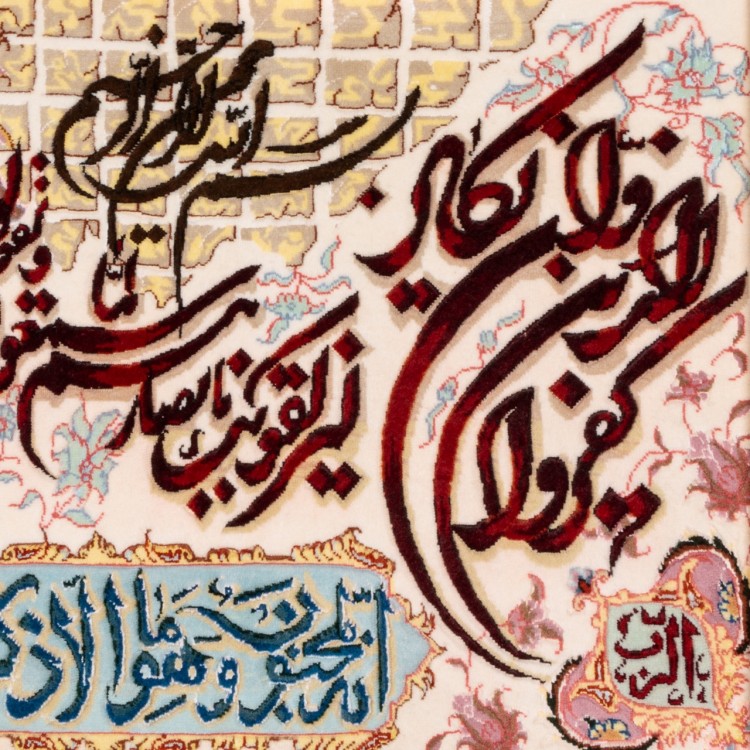 بسم الله الرحمن الرحيم
وان يكاد الذين كفروا
ليزلقونك بابصارهم لما سمعوا
انه لمجنون وما هو الا ذكر